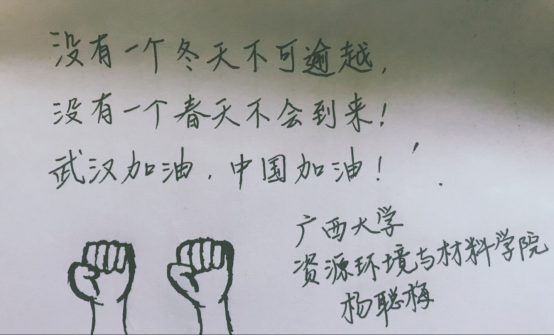 没有一个冬天不可逾越，
没有一个春天不会到来！
武汉加油，中国加油！
广西大学
资源环境与材料学院
杨聪梅